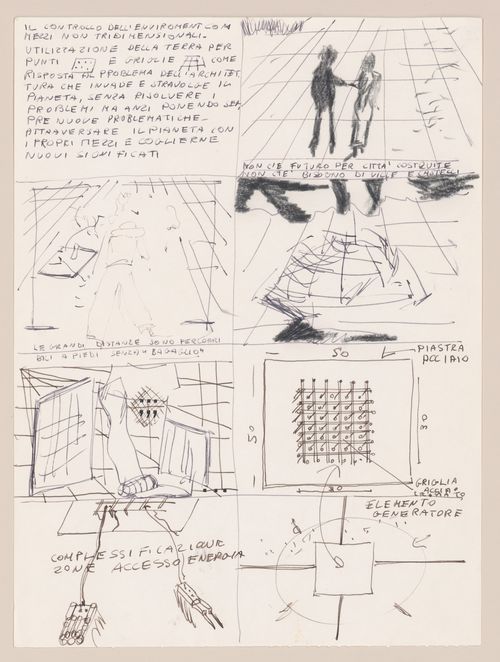 IL CONTROLLO DELL'ENVIROMENT CON
MEZZI NON TRIDIMENSIONALI.
UTILIZZAZIONE DELLA TERRA PER
PUNTI E GRIGLIE COME
RISPOSTA AL PROBLEMA DELL'ARCHITET
TURA CHE INVADE E STRAVOLGE IL
PIANETA, SENZA RISOLVERE I
PROBLEMI MA ANZI PONENDO SEM
PRE NUOVE PROBLEMATICHE.
ATTRAVERSARE IL PIANETA CON
I PROPRI MEZZI E COGLIERNE
NUOVI SIGNIFICATI
NON C'È FUTURO PER CITTA' COSTRUITE
NON C'È BISOGNO DI VILLE E CASTELLI
LE GRANDI DISTANZE SONO PERCORRI
BILI A PIEDI SENZA "BAGAGLIO"
50
PIASTRA
ACCIAIO
50
30
30
GRIGLIA
ACCIAIO
COMPLESSIFICAZIONE
ZONE ACCESSO ENERGIA
ELEMENTO
GENERATORE